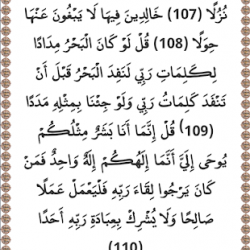 نُزُلًا (107) خَالِدِينَ فِيهَا لَا يَبْغُونَ عَنْهَا
حِوَلًا (108) قُل لَّوْ كَانَ الْبَحْرُ مِدَادًا
لِّكَلِمَاتِ رَبِّي لَنَفِدَ الْبَحْرُ قَبْلَ أَن
تَنفَدَ كَلِمَاتُ رَبِّي وَلَوْ جِئْنَا بِمِثْلِهِ مَدَدًا
(109) قُلْ إِنَّمَا أَنَا بَشَرٌ مِّثْلُكُمْ
يُوحَى إِلَيَّ أَنَّمَا إِلَهُكُمْ إِلَهٌ وَاحِدٌ فَمَن
كَانَ يَرْجُوا لِقَاءَ رَبِّهِ فَلْيَعْمَلْ عَمَلًا
صَالِحًا وَلَا يُشْرِكْ بِعِبَادَةِ رَبِّهِ أَحَدًا
(110)